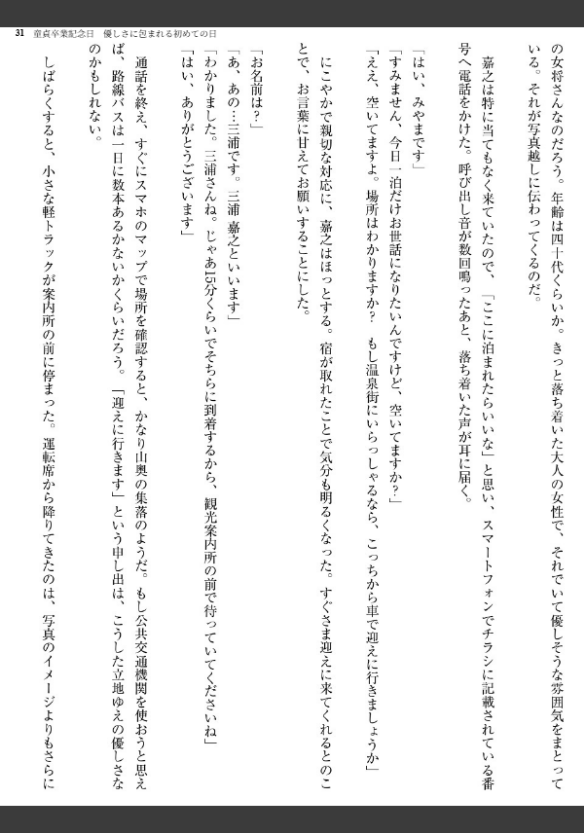 31 童貞卒業記念日　優しさに包まれる初めての日
の女将さんなのだろう。年齢は四十代くらいか。きっと落ち着いた大人の女性で、それでいて優しそうな雰囲気をまとって
いる。それが写真越しに伝わってくるのだ。
　嘉之は特に当てもなく来ていたので、「ここに泊まれたらいいな」と思い、スマートフォンでチラシに記載されている番
号へ電話をかけた。呼び出し音が数回鳴ったあと、落ち着いた声が耳に届く。
「はい、みやまです」
「すみません、今日一泊だけお世話になりたいんですけど、空いてますか？」
「ええ、空いてますよ。場所はわかりますか？　もし温泉街にいらっしゃるなら、こっちから車で迎えに行きましょうか」
　にこやかで親切な対応に、嘉之はほっとする。宿が取れたことで気分も明るくなった。すぐさま迎えに来てくれるとのこ
とで、お言葉に甘えてお願いすることにした。
「お名前は？」
「あ、あの…三浦です。三浦 嘉之といいます」
「わかりました。三浦さんね。じゃあ15分くらいでそちらに到着するから、観光案内所の前で待っていてくださいね」
「はい、ありがとうございます」
　通話を終え、すぐにスマホのマップで場所を確認すると、かなり山奥の集落のようだ。もし公共交通機関を使おうと思え
ば、路線バスは一日に数本あるかないかくらいだろう。「迎えに行きます」という申し出は、こうした立地ゆえの優しさな
のかもしれない。
　しばらくすると、小さな軽トラックが案内所の前に停まった。運転席から降りてきたのは、写真のイメージよりもさらに